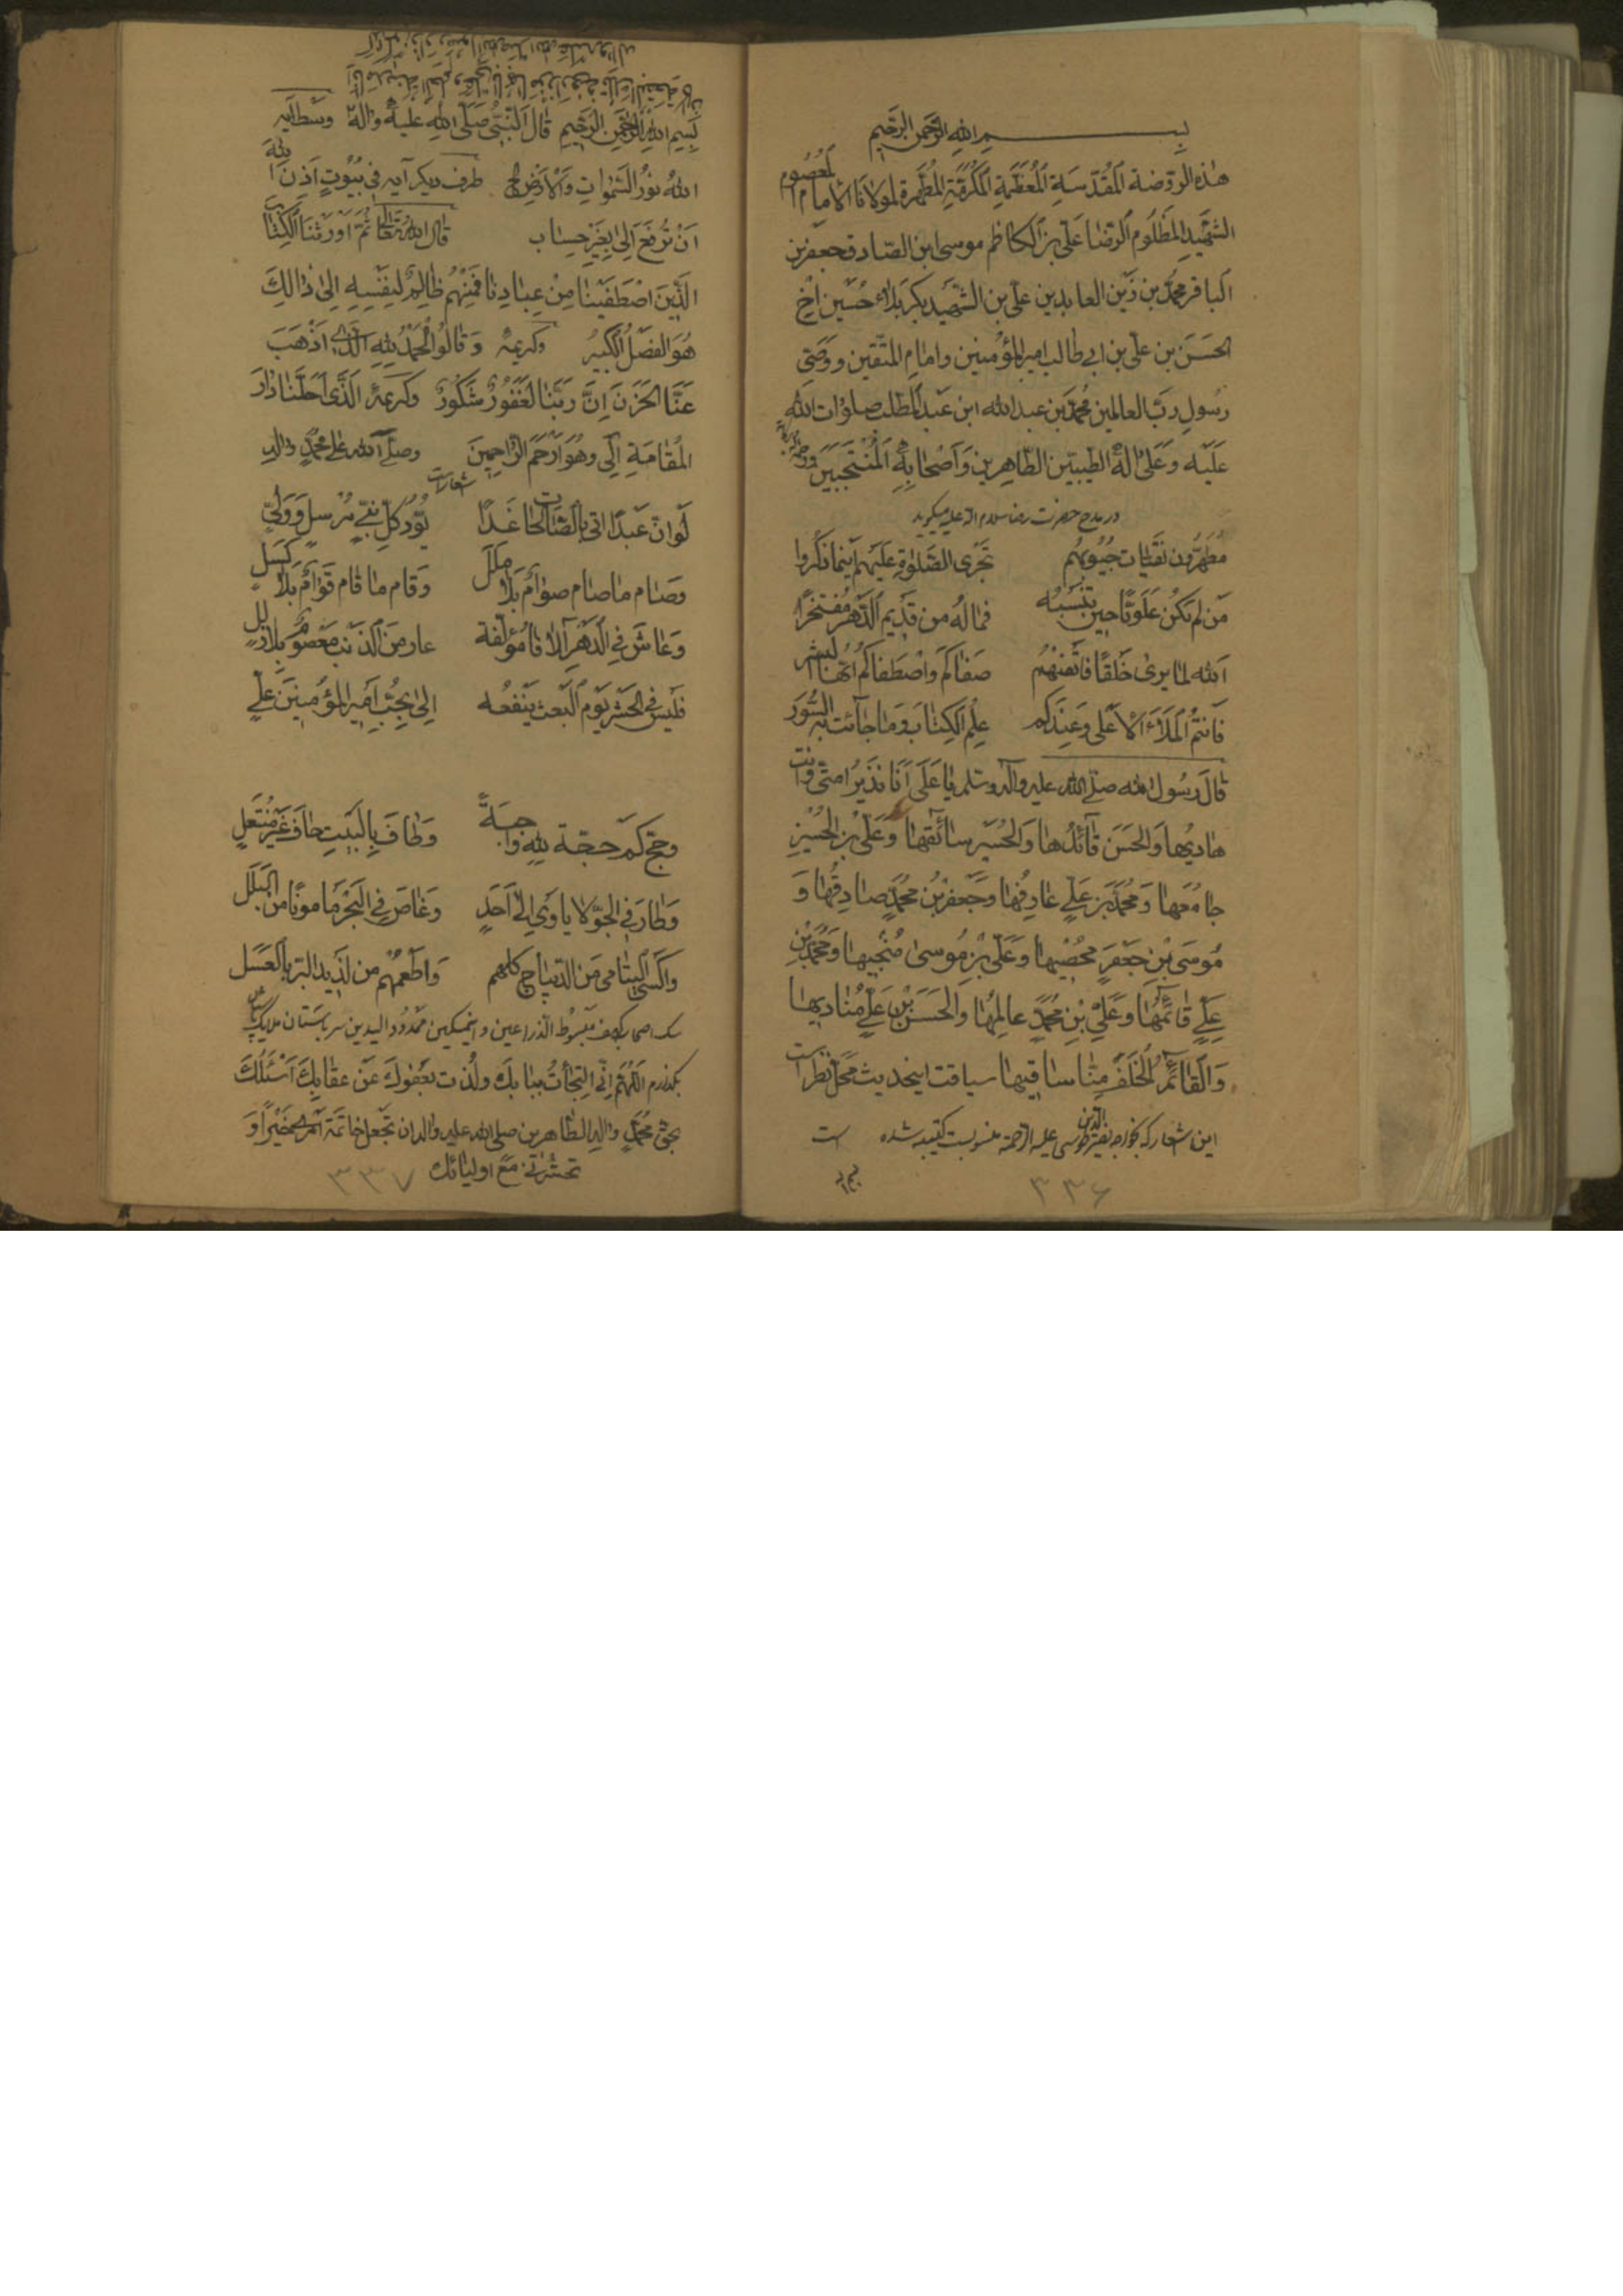 بسم الله الرحمن الرحیم
هذه الروضة المقدسة المعظمة المکرمة المطهرة لمولانا الامام المعصوم
الشهید المظلوم الرضا علی بن الکاظم موسی ابن الصادق جعفر بن
الباقر محمد بن زین العابدین علی بن الشهید بکربلاء حسین اخ
الحسن بن علی بن ابی طالب امیر المؤمنین وامام المتقین ووصی
رسول رب العالمین محمد بن عبدالله ابن عبد المطلب صلوات الله
علیه وعلی اله الطیبین الطاهرین واصحابه المنتجبین
در مدح حضرت رضا سلام الله علیه میگوید
مطهرون نقیات جیوبهم تجری الصلوة علیهم اینما ذکروا
من لم تکن علویا حین تنسبه فماله من قدیم الدهر مفتخرا
الله لما یری خلقا فاتقنهم صفاکم واصطفاکم ایها البشر
فانتم الملاء الاعلی وعندکم علم الکتاب وما جائت به السور
قال رسول الله صلی الله علیه وآله وسلم یا علی انا نذیر امتی وانت
هادیها والحسن قائدها والحسین سائقها وعلی بن الحسین
جامعها ومحمد بن علی عارفها وجعفر بن محمد صادقها و
موسی بن جعفر محصیها وعلی بن موسی منجیها ومحمد بن
علی قائمها وعلی بن محمد عالمها والحسن بن علی منادیها
والقائم الخلف منا ساقیها سیاقت اینحدیث محل نظر است
این اشعار که بخواجه نصیر الدین طوسی علیه الرحمة منسوبست کتیبه شده است
۳۳۶
بسم الله الرحمن الرحیم قال النبی صلی الله علیه واله وسط آیه
الله نور السموات والارض الخ طرف دیگر آیه فی بیوت اذن الله
ان ترفع الی بغیر حساب قال الله تعالی ثم اورثنا الکتاب
الذین اصطفینا من عبادنا فمنهم ظالم لنفسه الی ذالک
هو الفضل الکبیر وکریمهٔ وقالوا الحمد لله الذی اذهب
عنا الحزن ان ربنا لغفور شکور وکریمهٔ الذی احلنا دار
المقامة الی وهو ارحم الراحمین وصلی الله علی محمد واله
اشعار
لو ان عبدا اتی بالصالحات غدا بود کل نبی مرسل وولی
وصام ما صام صوام بلا ملل وقام ما قام قوام بلا کسل
وعاش فی الدهر آلافا مؤلفة عار من الذنب معصوم بلا زلل
فلیس فی الحشر یوم البعث ینفعه الی بحب امیر المؤمنین علی
وحج کم حجة لله واجبة وطاف بالبیت حاف غیر منتعل
وطار فی الجو لا یاوی الی احد وغاص فی البحر مامونا من البلل
واکسی الیتامی من الدیباج کلهم واطعمهم من لذید البر بالعسل
سک اصحاب کهف مبسوط الذراعین و اینمسکین ممدود الیدین سر باستان ملایک
بگذارم اللهم انی التجأت ببابک ولذت بعفوک عن عقابک اسئلک
بحق محمد واله الطاهرین صلی الله علیه واله ان تجعل خاتمة خیرا و
تحشرنی مع اولیائک
۳۳۷